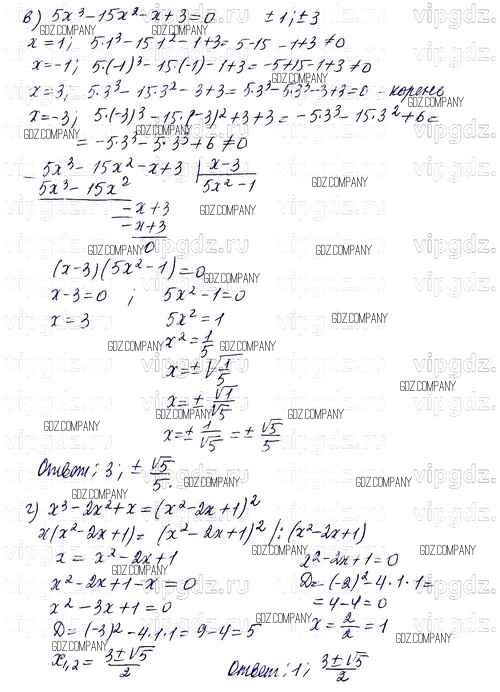 в) 5x³-15x²-x+3=0   ±1; ±3
x=1; 5·1³-15·1²-1+3=5-15-1+3≠0
x=-1; 5·(-1)³-15(-1)-1+3=-5+15-1+3≠0
x=3; 5·3³-15·3²-3+3=5·3³-5·3³-3+3=0 - корень
x=-3; 5·(-3)³-15·(-3)²+3+3=-5·3³-15·3²+6=
=-5·3³-5·3³+6≠0
- 5x³-15x²-x+3 | x-3
5x³-15x²   5x²-1
-x+3
-x+3
0
(x-3)(5x²-1)=0
x-3=0 ; 5x²-1=0
x=3   5x²=1
x²=1/5
x=±√(1/5)
x=±√1/√5
x=±1/√5=±√5/5
Ответ: 3; ±√5/5.
г) x³-2x²+x=(x²-2x+1)²
x(x²-2x+1)=(x²-2x+1)² |:(x²-2x+1)
x=x²-2x+1   x²-2x+1=0
x²-2x+1-x=0   D=(-2)²-4·1·1=
x²-3x+1=0   =4-4=0
D=(-3)²-4·1·1=9-4=5   x=2/2=1
x₁,₂=(3±√5)/2   Ответ: 1; (3±√5)/2
vipgdz.ru
GDZ.COMPANY